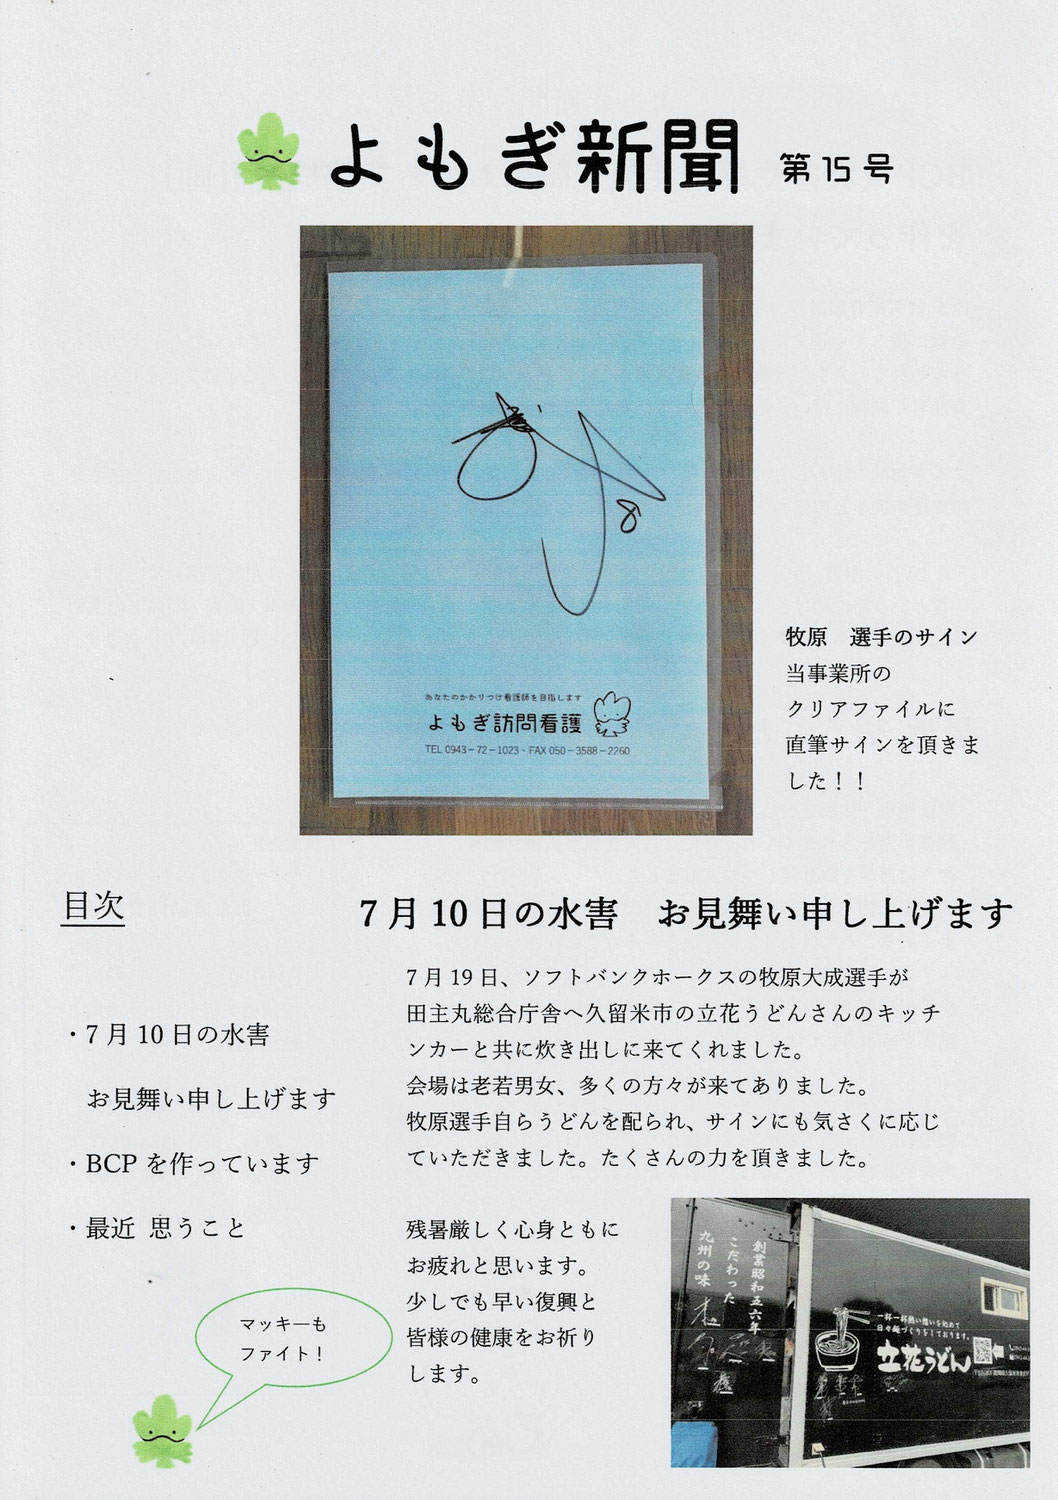 よもぎ新聞 第15号
あなたのかかりつけ看護師を目指します
よもぎ訪問看護
TEL 0943-72-1023・FAX 050-3588-2260
牧原　選手のサイン
当事業所の
クリアファイルに
直筆サインを頂きま
した！！
目次
・7月10日の水害
お見舞い申し上げます
・BCPを作っています
・最近 思うこと
マッキーも
ファイト！
7月10日の水害　お見舞い申し上げます
7月19日、ソフトバンクホークスの牧原大成選手が
田主丸総合庁舎へ久留米市の立花うどんさんのキッチ
ンカーと共に炊き出しに来てくれました。
会場は老若男女、多くの方々が来てありました。
牧原選手自らうどんを配られ、サインにも気さくに応じ
ていただきました。たくさんの力を頂きました。
残暑厳しく心身ともに
お疲れと思います。
少しでも早い復興と
皆様の健康をお祈り
します。
創業昭和五六年
こだわった
九州の味
一杯一杯熱い想いを込めて
日々麺づくりをしております。
立花うどん